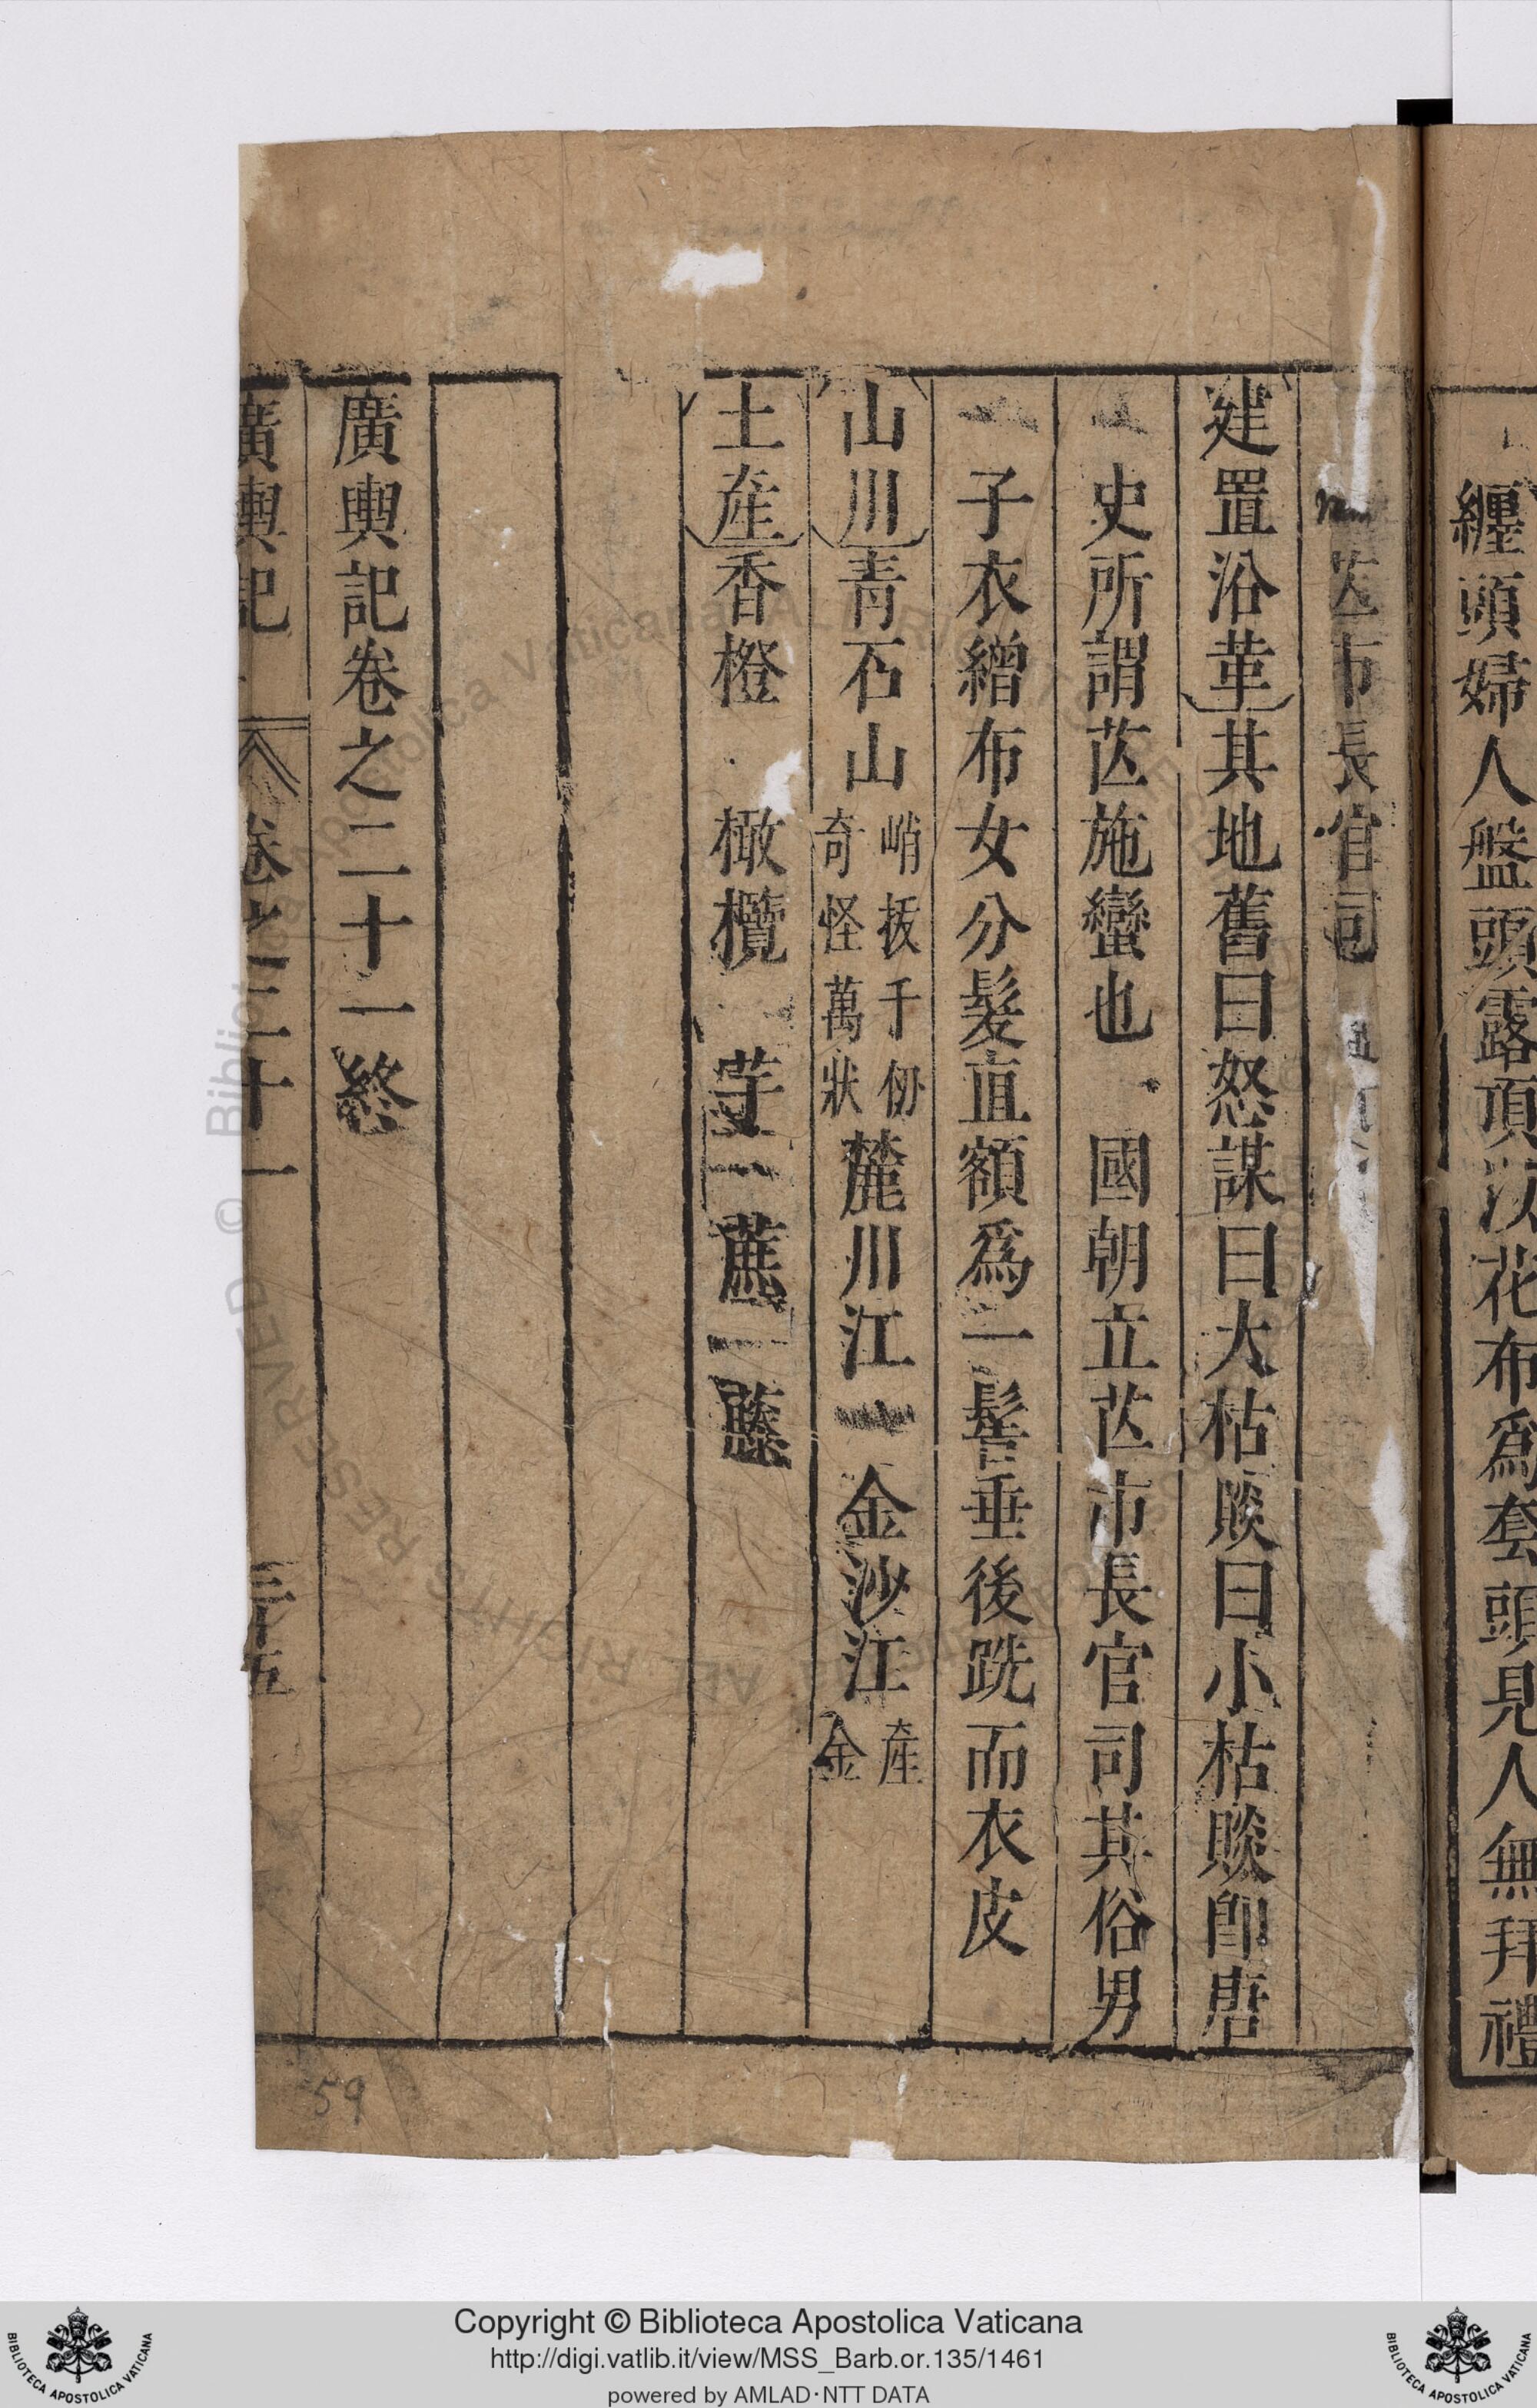 纏頭婦人盤頭露頂以花布爲套頭見人無拜禮
芒市長官司
建置沿革其地舊曰怒謀曰大枯賧曰小枯賧卽唐
史所謂芒施蠻也 國朝立芒市長官司其俗男
子衣繒布女分髮直額爲一髻垂後跣而衣皮
山川青石山峭拔千仞奇怪萬狀麓川江 金沙江産金
土産香橙 橄欖 芋 蔗 藤
廣輿記卷之二十一終
廣輿記 卷之二十一 三十五
59
© Biblioteca Apostolica Vaticana ALL RIGHTS RESERVED
Copyright © Biblioteca Apostolica Vaticana
http://digi.vatlib.it/view/MSS_Barb.or.135/1461
powered by AMLAD·NTT DATA
BIBLIOTECA APOSTOLICA VATICANA
BIBLIOTECA APOSTOLICA VATICANA